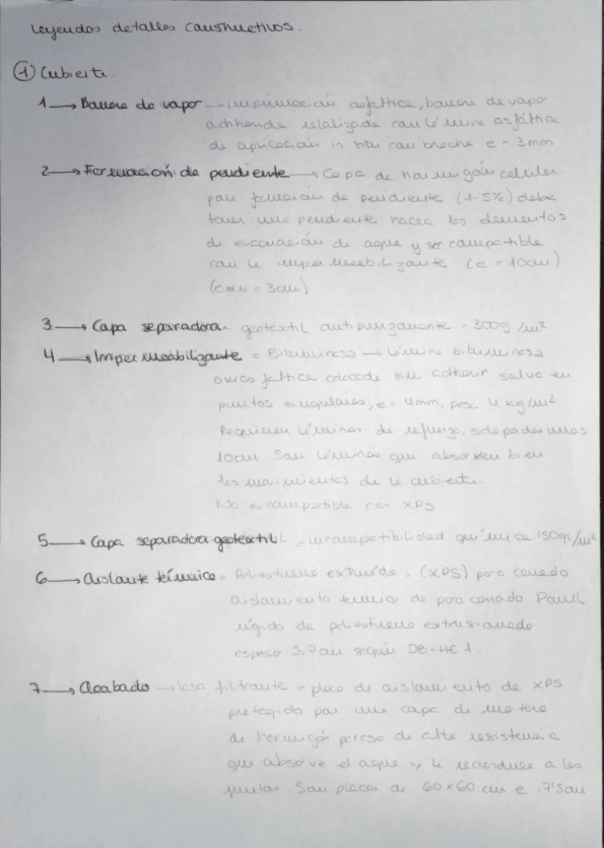 Leyendas detalles constructivos.
① Cubierta.
1 → Barrera de vapor → imprimación asfáltica, barrera de vapor
adherida realizada con lámina asfáltica
de aplicación in situ con brocha e = 3mm
2 → Formación de pendiente → Capa de hormigón celular
para formación de pendiente (1-5%) debe
tener una pendiente hacia los elementos
de evacuación de agua y ser compatible
con la impermeabilizante (e = 10cm)
(emin = 3cm)
3 → Capa separadora = geotextil antipunzonante = 300g/m²
4 → Impermeabilizante = Bituminosa → lámina bituminosa
colocada sin adherir salvo en
puntos singulares, e = 4mm, peso 4 kg/m²
Requieren láminas de refuerzo, solapadas unos
10cm. Son láminas que absorben bien
los movimientos de la cubierta.
No es compatible con XPS
5 → Capa separadora geotextil = incompatibilidad química 150gr/m²
6 → Aislante térmico = Poliestireno extruído. (XPS) poro cerrado
aislamiento térmico de poro cerrado Panel
rígido de poliestireno extrusionado
espesor según DB-HE 1.
7 → Acabado → losa filtrante = placa de aislamiento de XPS
protegido por una capa de mortero
de hormigón poroso de alta resistencia
que absorve el agua y la reconduce a las
juntas. Son placas de 60x60 cm e = 7'5cm